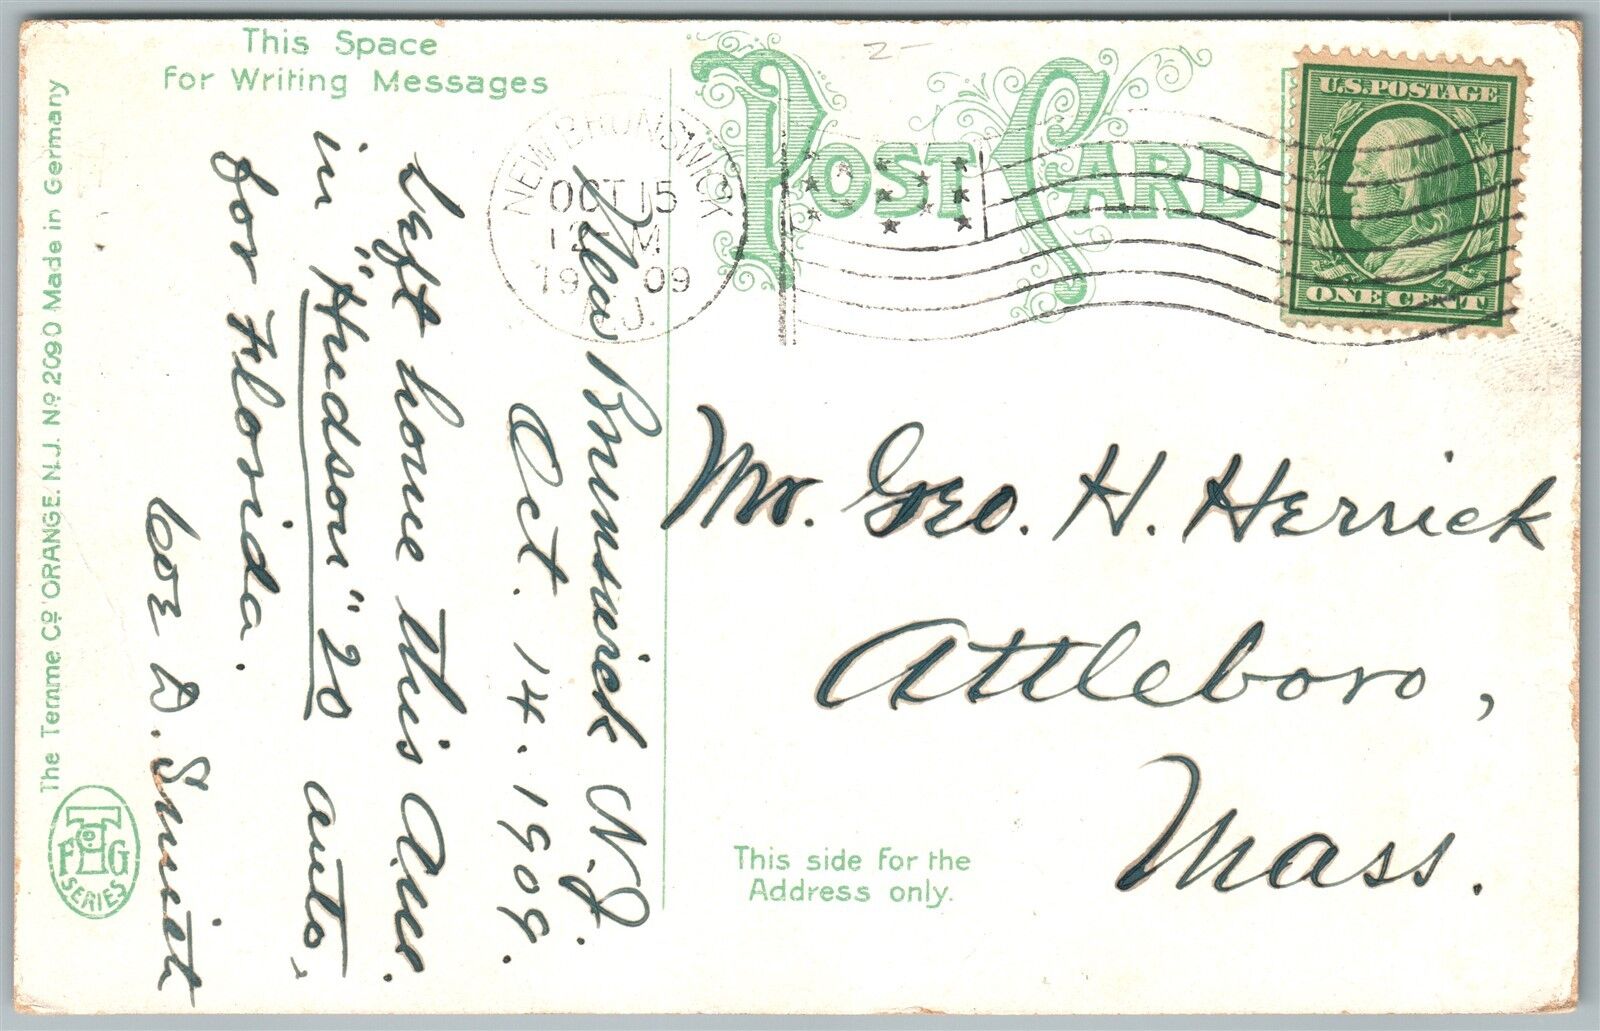 This Space
For Writing Messages
POST CARD
U.S. POSTAGE
ONE CENT
NEW BRUNSWICK
OCT 15
12 M
1909
N.J.
New Brunswick N.J.
Oct. 14. 1909.
Left home this a.m.
in "Hudson" 20 auto,
for Florida.
Coz D. Smith
Mr. Geo. H. Herrick
Attleboro,
Mass.
This side for the
Address only.
The Temme Co. ORANGE. N.J. No 2090 Made in Germany
F T G
SERIES
2-